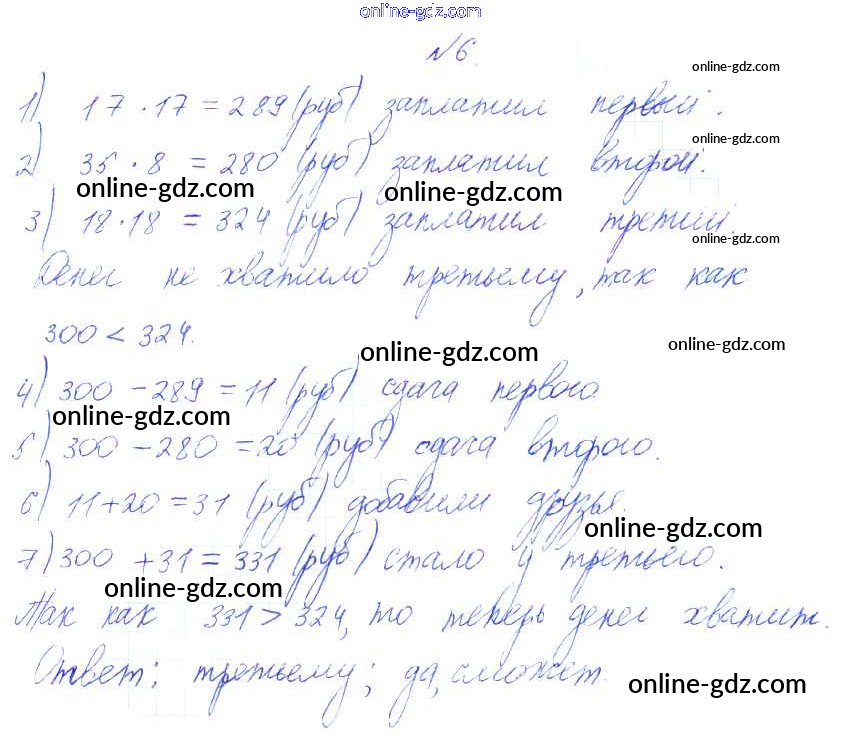 online-gdz.com
№6.
online-gdz.com
1) 17 · 17 = 289 (руб) заплатил первый.
online-gdz.com
2) 35 · 8 = 280 (руб) заплатил второй.
online-gdz.com online-gdz.com
3) 18 · 18 = 324 (руб) заплатил третий.
online-gdz.com
Денег не хватило третьему, так как
300 < 324.
online-gdz.com online-gdz.com
4) 300 - 289 = 11 (руб) сдача первого.
online-gdz.com
5) 300 - 280 = 20 (руб) сдача второго.
6) 11 + 20 = 31 (руб) добавили друзья.
online-gdz.com
7) 300 + 31 = 331 (руб) стало у третьего.
online-gdz.com
Так как 331 > 324, то теперь денег хватит.
Ответ: третьему; да, сможет.
online-gdz.com